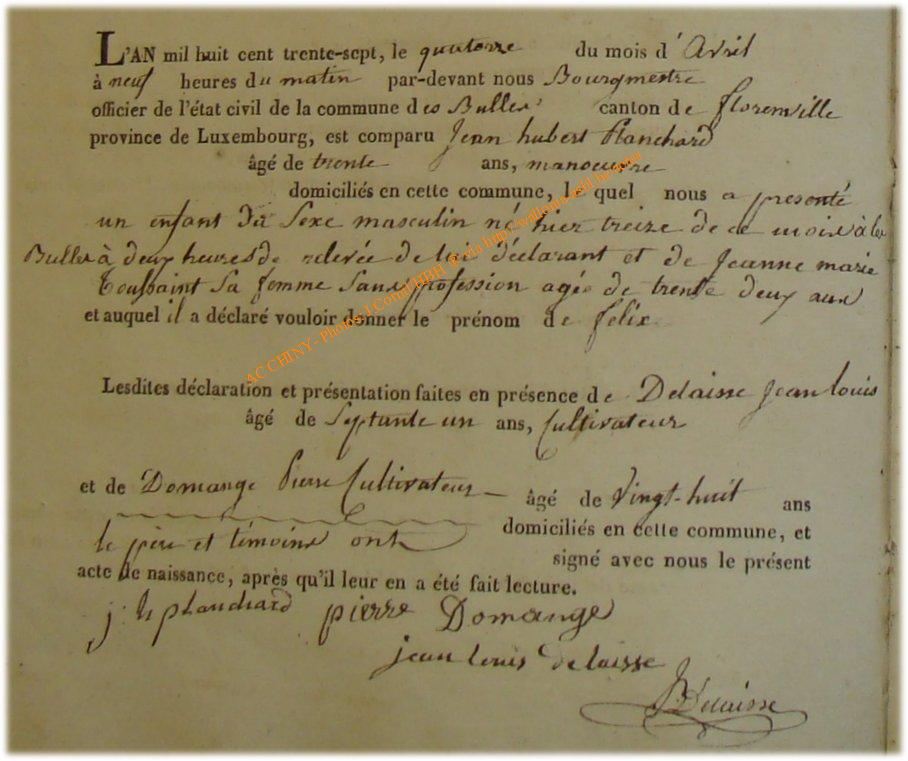 L'AN mil huit cent trente-sept, le quatorze du mois d'Avril
à neuf heures du matin par-devant nous Bourgmestre
officier de l'état civil de la commune des Bulles canton de florenville
province de Luxembourg, est comparu Jean hubert Planchard
âgé de trente ans, manoeuvre
domiciliés en cette commune, le quel nous a presenté
un enfant du sexe masculin né hier treize de ce mois à les
Bulles à deux heures de relevée de lui déclarant et de Jeanne marie
Toussaint sa femme sans profession agée de trente deux ans
et auquel il a déclaré vouloir donner le prénom de felix
AC CHINY - Photos J Cornet
Lesdites déclaration et présentation faites en présence de Delaisse Jean louis
âgé de Septante un ans, Cultivateur
et de Domange Pierre Cultivateur âgé de Vingt-huit ans
domiciliés en cette commune, et
le père et témoins ont
signé avec nous le présent
acte de naissance, après qu'il leur en a été fait lecture.
j h planchard pierre Domange
jean louis delaisse
Delaisse